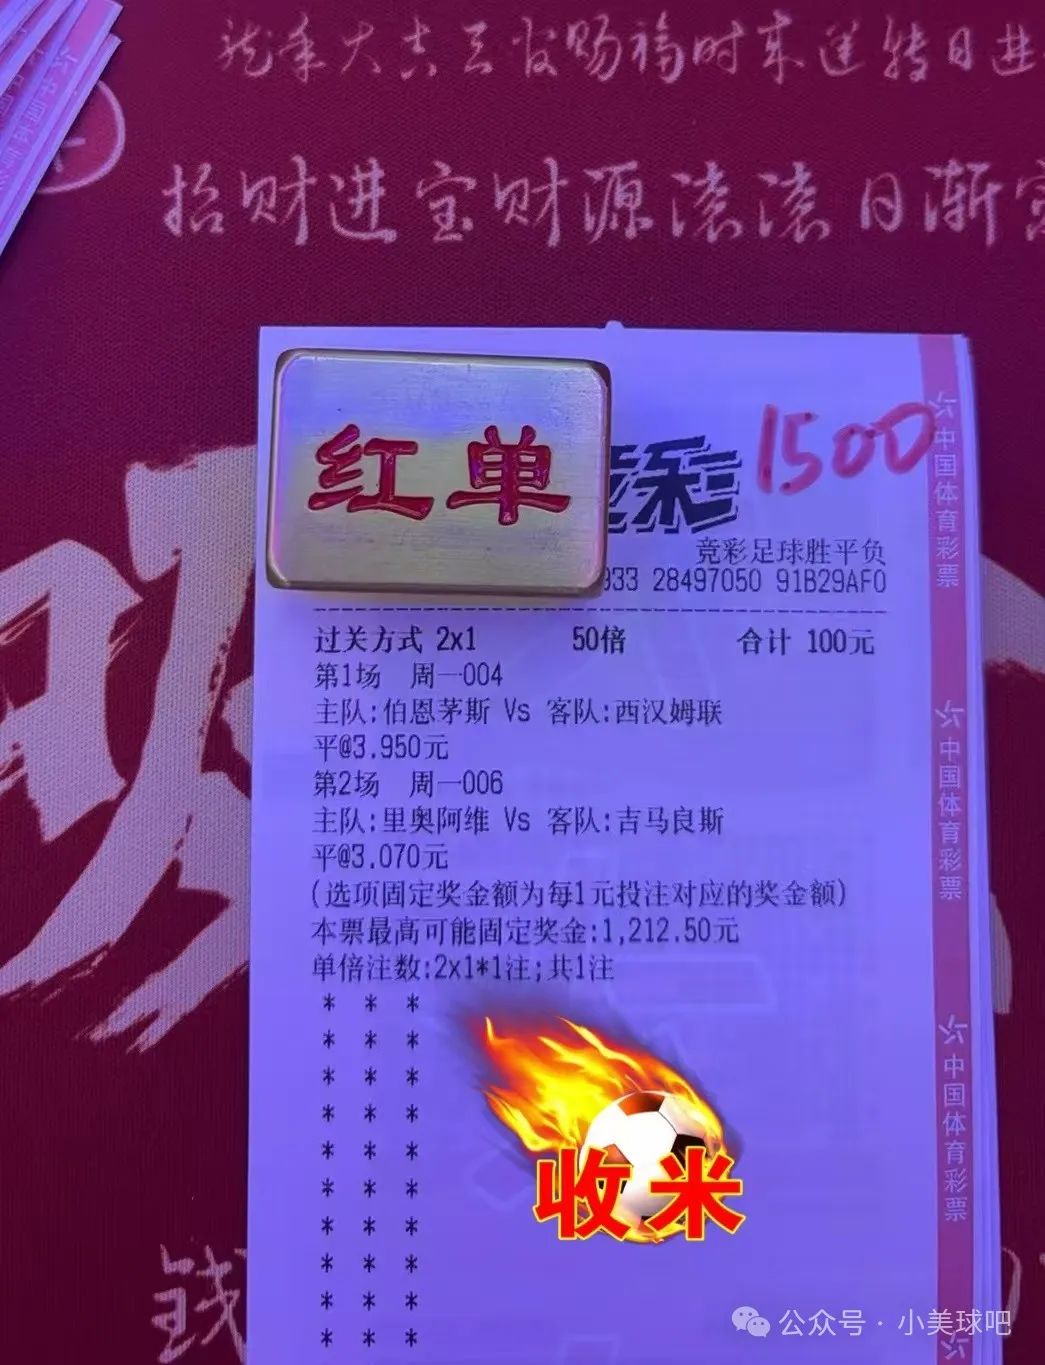 龙年大吉三官赐福时来运转日进
招财进宝财源滚滚日渐富
红单
1500
竞彩足球胜平负
933 28497050 91B29AF0
过关方式 2x1 50倍 合计 100元
第1场 周一004
主队:伯恩茅斯 Vs 客队:西汉姆联
平@3.950元
第2场 周一006
主队:里奥阿维 Vs 客队:吉马良斯
平@3.070元
(选项固定奖金额为每1元投注对应的奖金额)
本票最高可能固定奖金:1,212.50元
单倍注数:2x1*1注;共1注
* * *
* * *
* * *
* * *
* * *
* * *
* * *
* * *
* * *
* * *
收米
中国体育彩票
中国体育彩票
中国体育彩票
钱
公众号 · 小美球吧